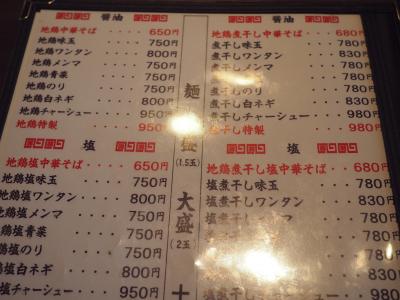 醤油
地鶏中華そば・・・・650円
地鶏味玉・・・・・750円
地鶏ワンタン・・・800円
地鶏メンマ・・・・750円
地鶏青菜・・・・・750円
地鶏のり・・・・・750円
地鶏白ネギ・・・・800円
地鶏チャーシュー・・950円
地鶏特製・・・・・950
塩
地鶏塩中華そば・・・650円
地鶏塩味玉・・・・750円
地鶏塩ワンタン・・・800円
地鶏塩メンマ・・・750円
地鶏塩青菜・・・・750円
地鶏塩のり・・・・750円
地鶏塩白ネギ・・・800円
鶏塩チャーシュー・・950円
麺
盛
(1.5玉)
大
盛
(2玉)
醤油
地鶏煮干し中華そば・・680円
煮干し味玉・・・・780円
煮干しワンタン・・・830円
煮干しメンマ・・・780円
780円
干しのり・・・・780円
干し白ネギ・・・830円
干しチャーシュー・・980円
干し特製・・・・980円
塩
地鶏煮干し塩中華そば・・680円
塩煮干し味玉・・・780円
塩煮干しワンタン・・830円
塩煮干しメンマ・・780円
塩煮干し
780円
塩煮干し
780円
830円